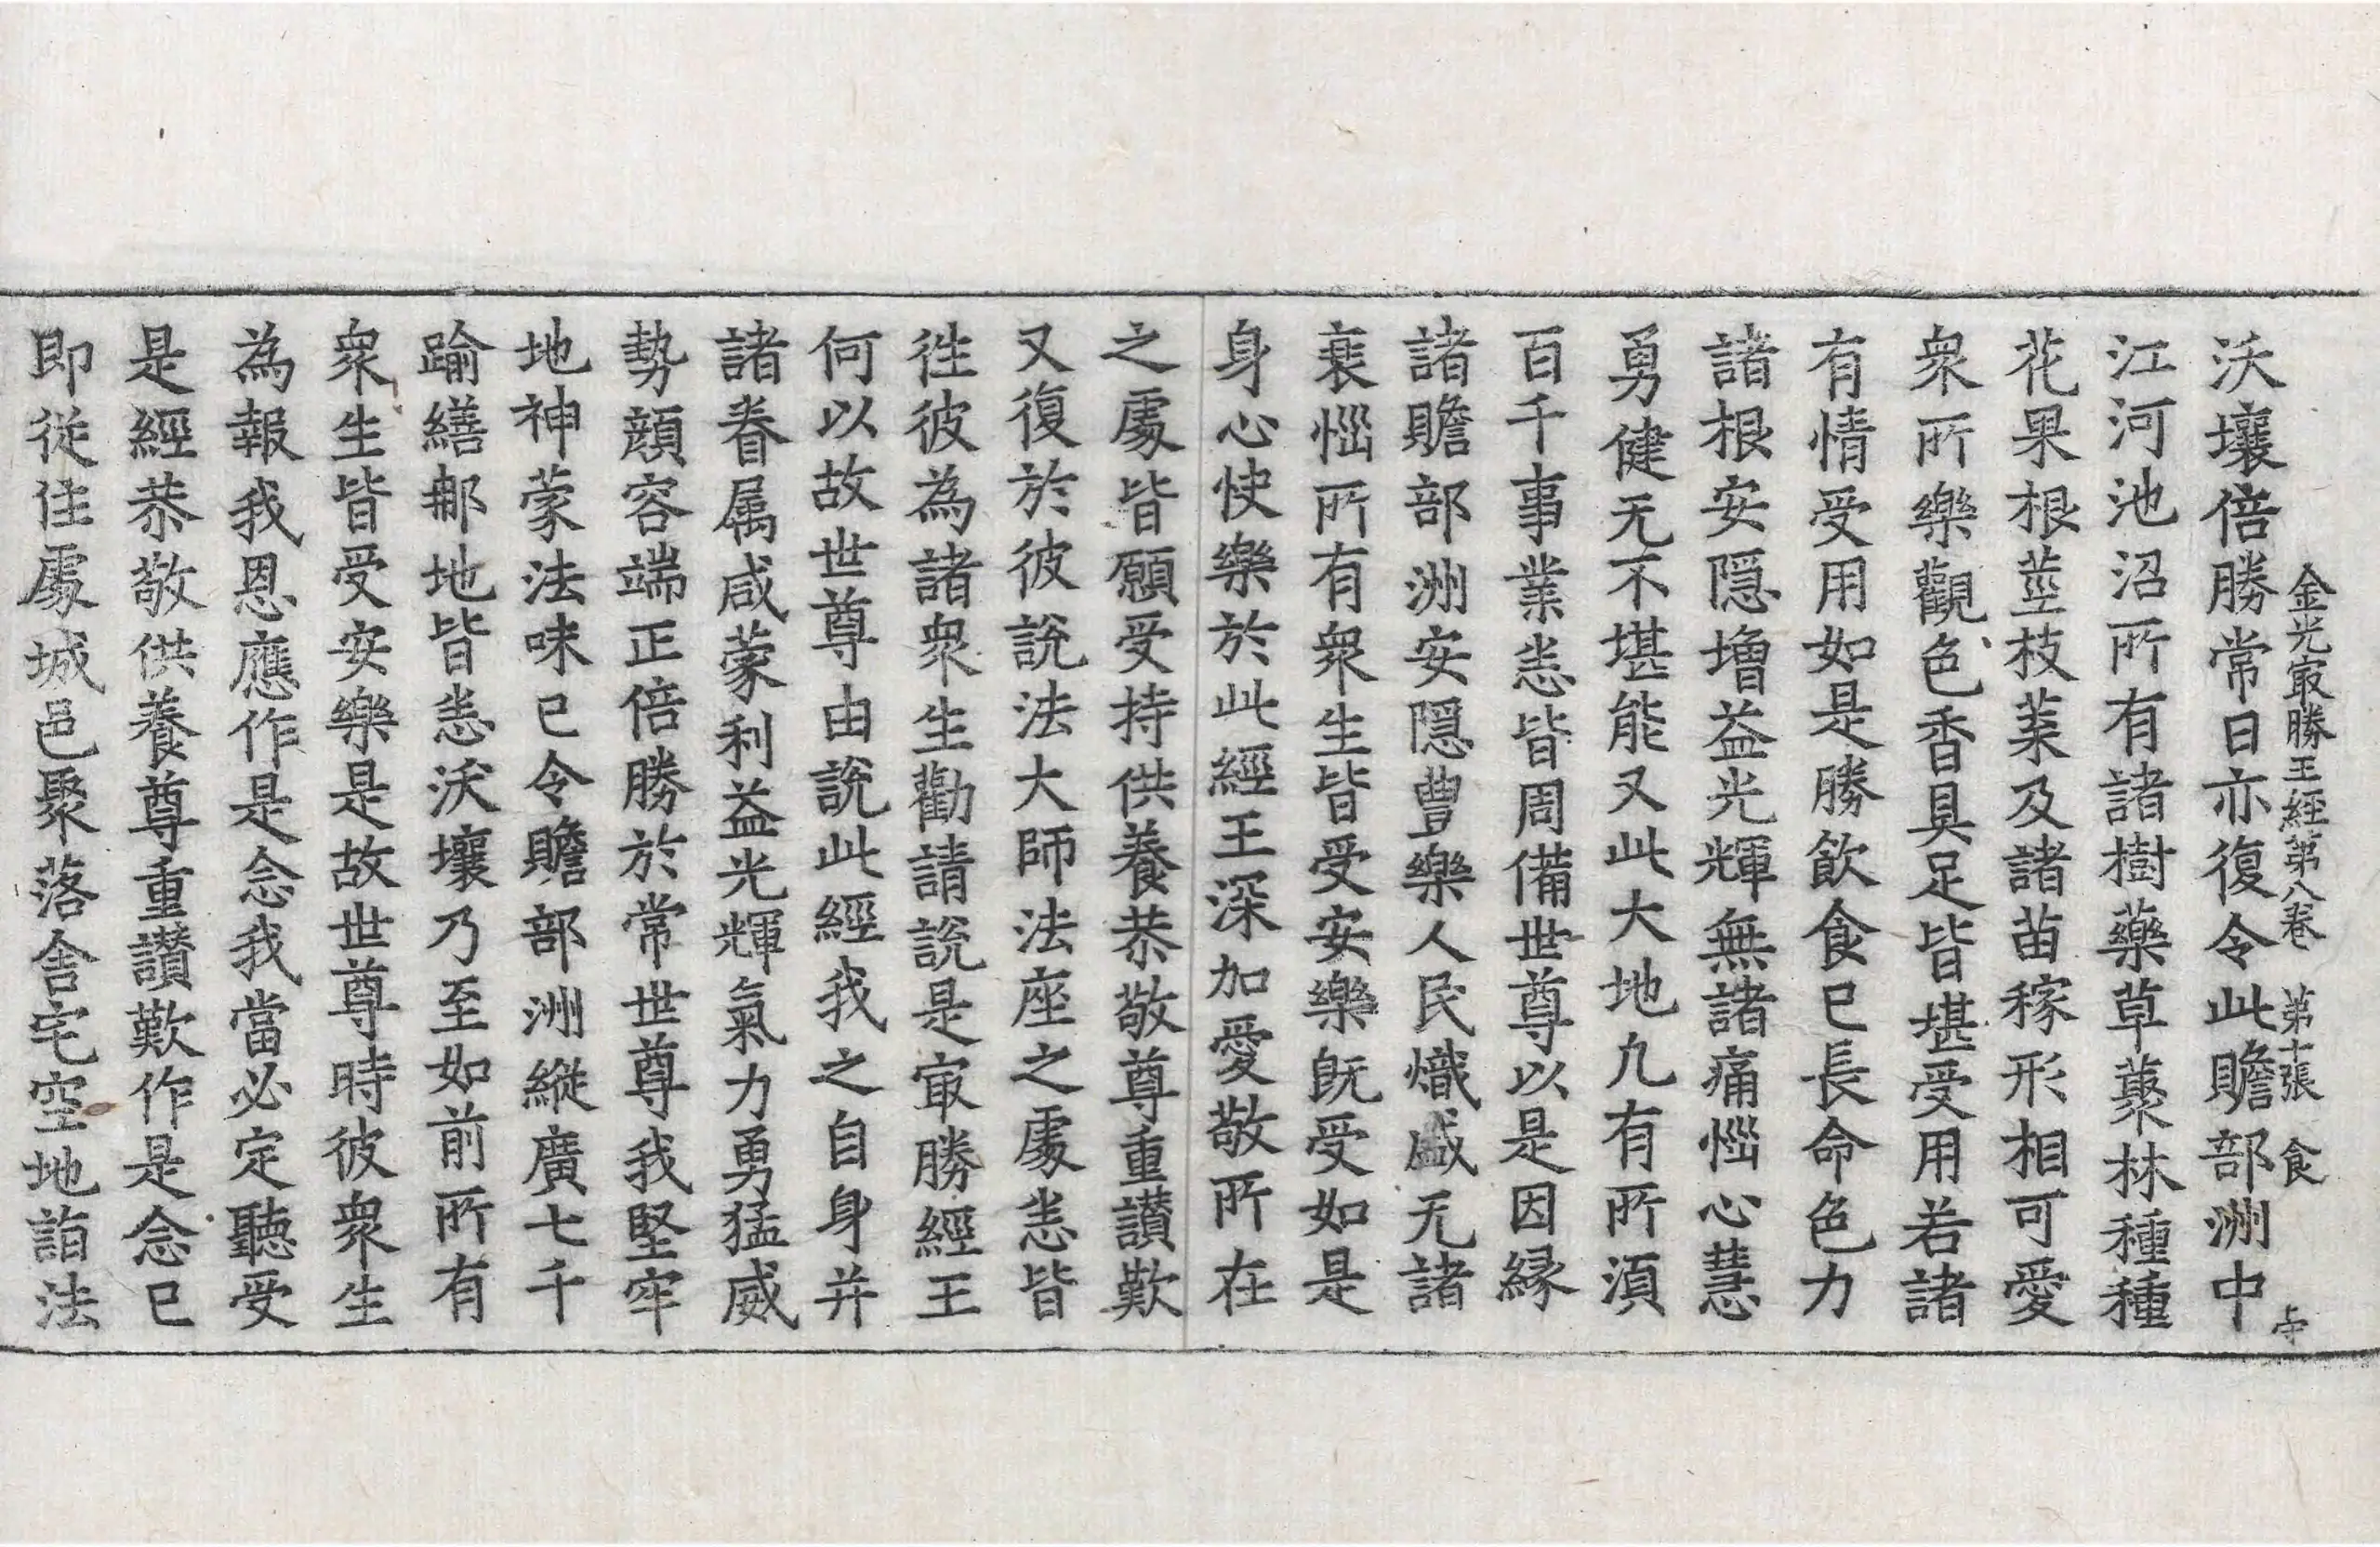 金光㝡勝王經第八卷 第十張 食
沃壤倍勝常日亦復令此贍部洲中
江河池沼所有諸樹藥草藂林種種
花果根莖枝葉及諸苗稼形相可愛
衆所樂觀色香具足皆堪受用若諸
有情受用如是勝飲食已長命色力
諸根安隱增益光輝無諸痛惱心慧
勇健无不堪能又此大地凢有所湏
百千事業悉皆周備世尊以是因縁
諸贍部洲安隱豊樂人民熾盛无諸
衰惱所有衆生皆受安樂旣受如是
身心快樂於此經王深加愛敬所在
之處皆願受持供養恭敬尊重讃歎
又復於彼說法大師法座之處悉皆
徃彼為諸衆生勸請說是㝡勝經王
何以故世尊由說此經我之自身并
諸眷属咸蒙利益光輝氣力勇猛威
勢顔容端正倍勝於常世尊我堅牢
地神蒙法味已令贍部洲縱廣七千
踰繕那地皆悉沃壤乃至如前所有
衆生皆受安樂是故世尊時彼衆生
為報我恩應作是念我當必定聽受
是經恭敬供養尊重讃歎作是念已
即從住處城邑聚落舎宅空地詣法